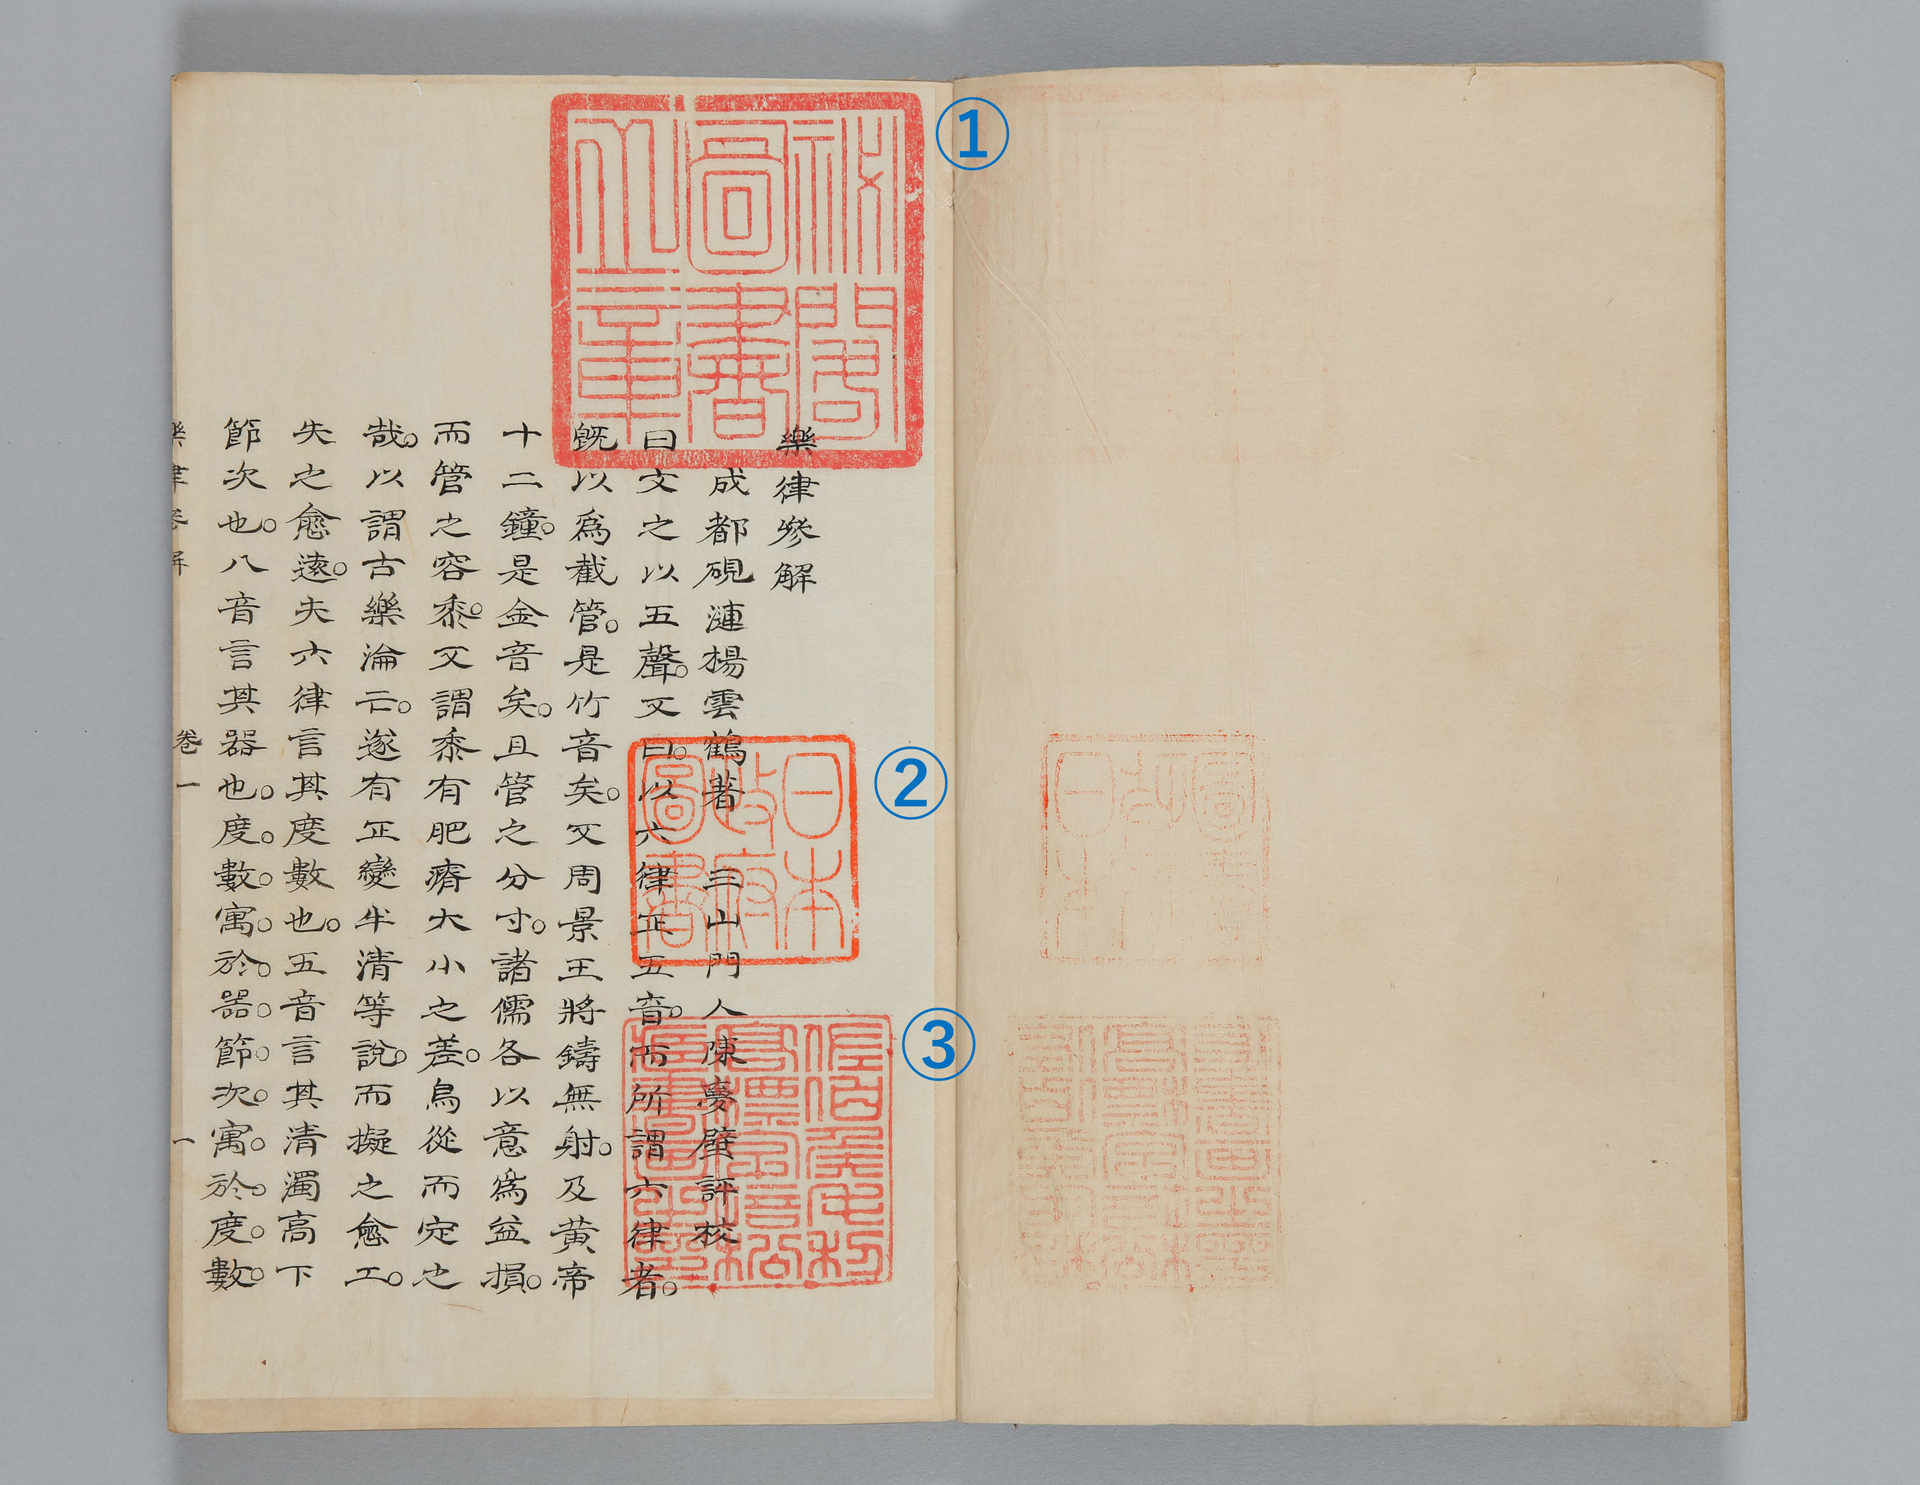 ①
秘閣
圖書
之章
②
日本
政府
圖書
③
佐伯矦毛利
高標字培松
藏書畫之印
樂律參解
成都硯漣楊雲鶴著 三山門人陳夢璧評校
曰文之以五聲。又曰。以六律正五音。而所謂六律者。
既以爲截管。是竹音矣。又周景王將鑄無射。及黃帝
十二鐘。是金音矣。且管之分寸。諸儒各以意爲益損。
而管之容黍。又謂黍有肥瘠大小之差。烏從而定之
哉。以謂古樂淪亡。遂有正變半清等說。而擬之愈工。
失之愈遠。夫六律言其度數也。五音言其清濁高下
節次也。八音言其器也。度。數。寓。於。器。節。次。寓。於。度。數。
樂律參解 卷一 一